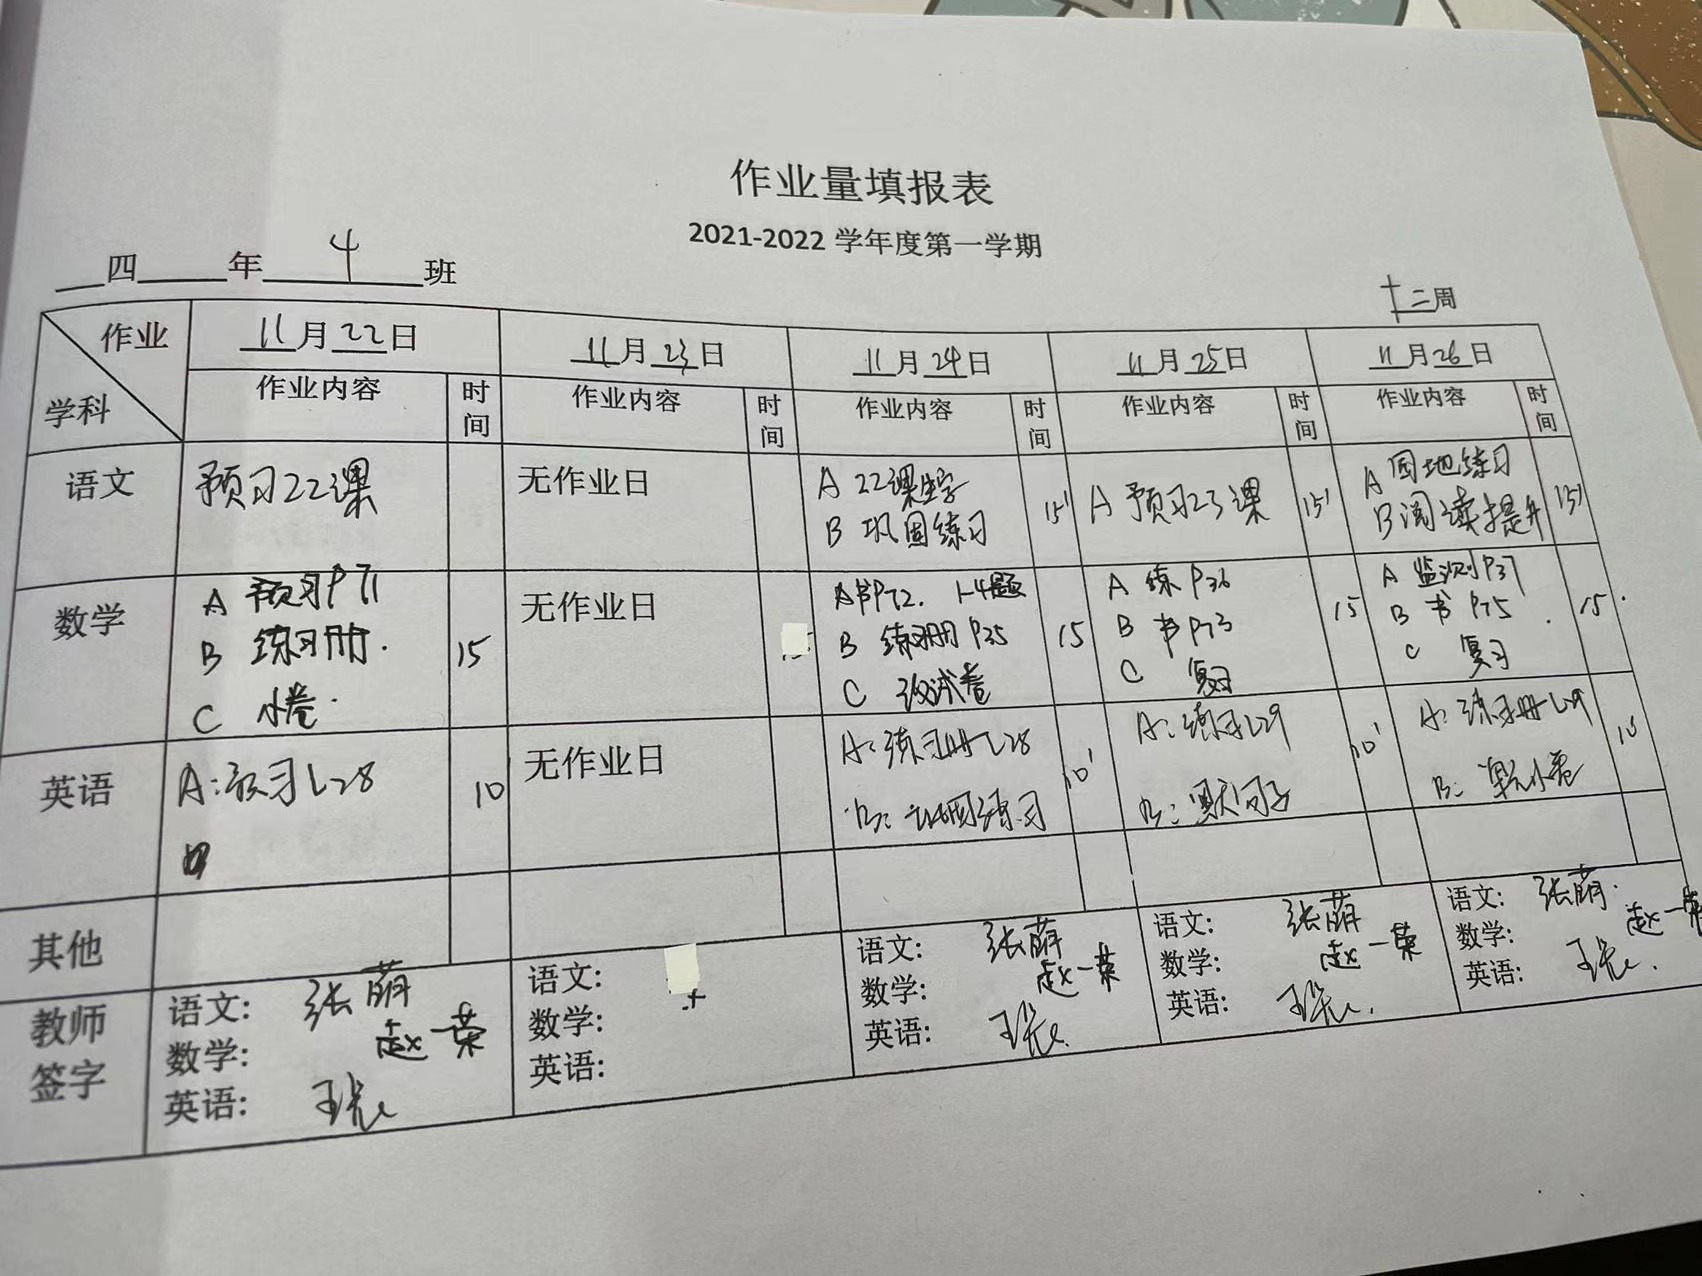 作业量填报表
2021-2022 学年度第一学期
四 年 4 班
十三周
作业
学科
11月22日
11月23日
11月24日
11月25日
11月26日
作业内容 时间
作业内容 时间
作业内容 时间
作业内容 时间
作业内容 时间
语文
预习22课
无作业日
A 22课生字
B 巩固练习
15'
A 预习23课
15'
A 园地练习
B 阅读提升
15'
数学
A 预习P71
B 练习册.
C 小卷.
15
无作业日
A 书P72. 1-4题
B 练习册P35
C 试卷
15
A 练P36
B 书P73
C 复习
15
A 监测P37
B 书P75
C 复习
15
英语
A: 预习L28
10
无作业日
A: 练习册L28
B: 练习
10'
A: 练习L29
B: 句子
10'
A: 练习册L29
B: 单元小卷
10
其他
教师签字
语文: 张萌
数学: 赵一荣
英语:
语文:
数学:
英语:
语文: 张萌
数学: 赵一荣
英语:
语文: 张萌
数学: 赵一荣
英语:
语文: 张萌
数学: 赵一荣
英语: